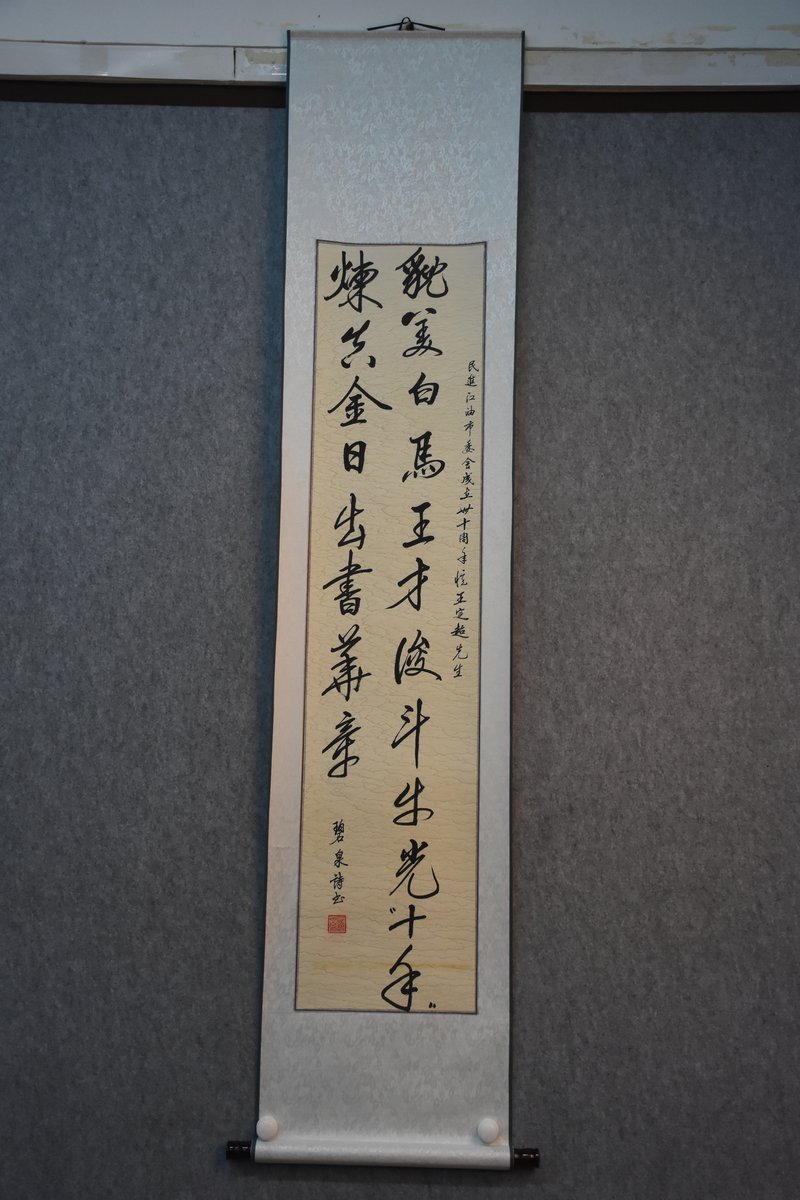 民進江油市委会成立卅十周年憶王定超先生
貌美白馬王才俊斗牛光“十年”
煉真金日出書華章
碧泉詩书